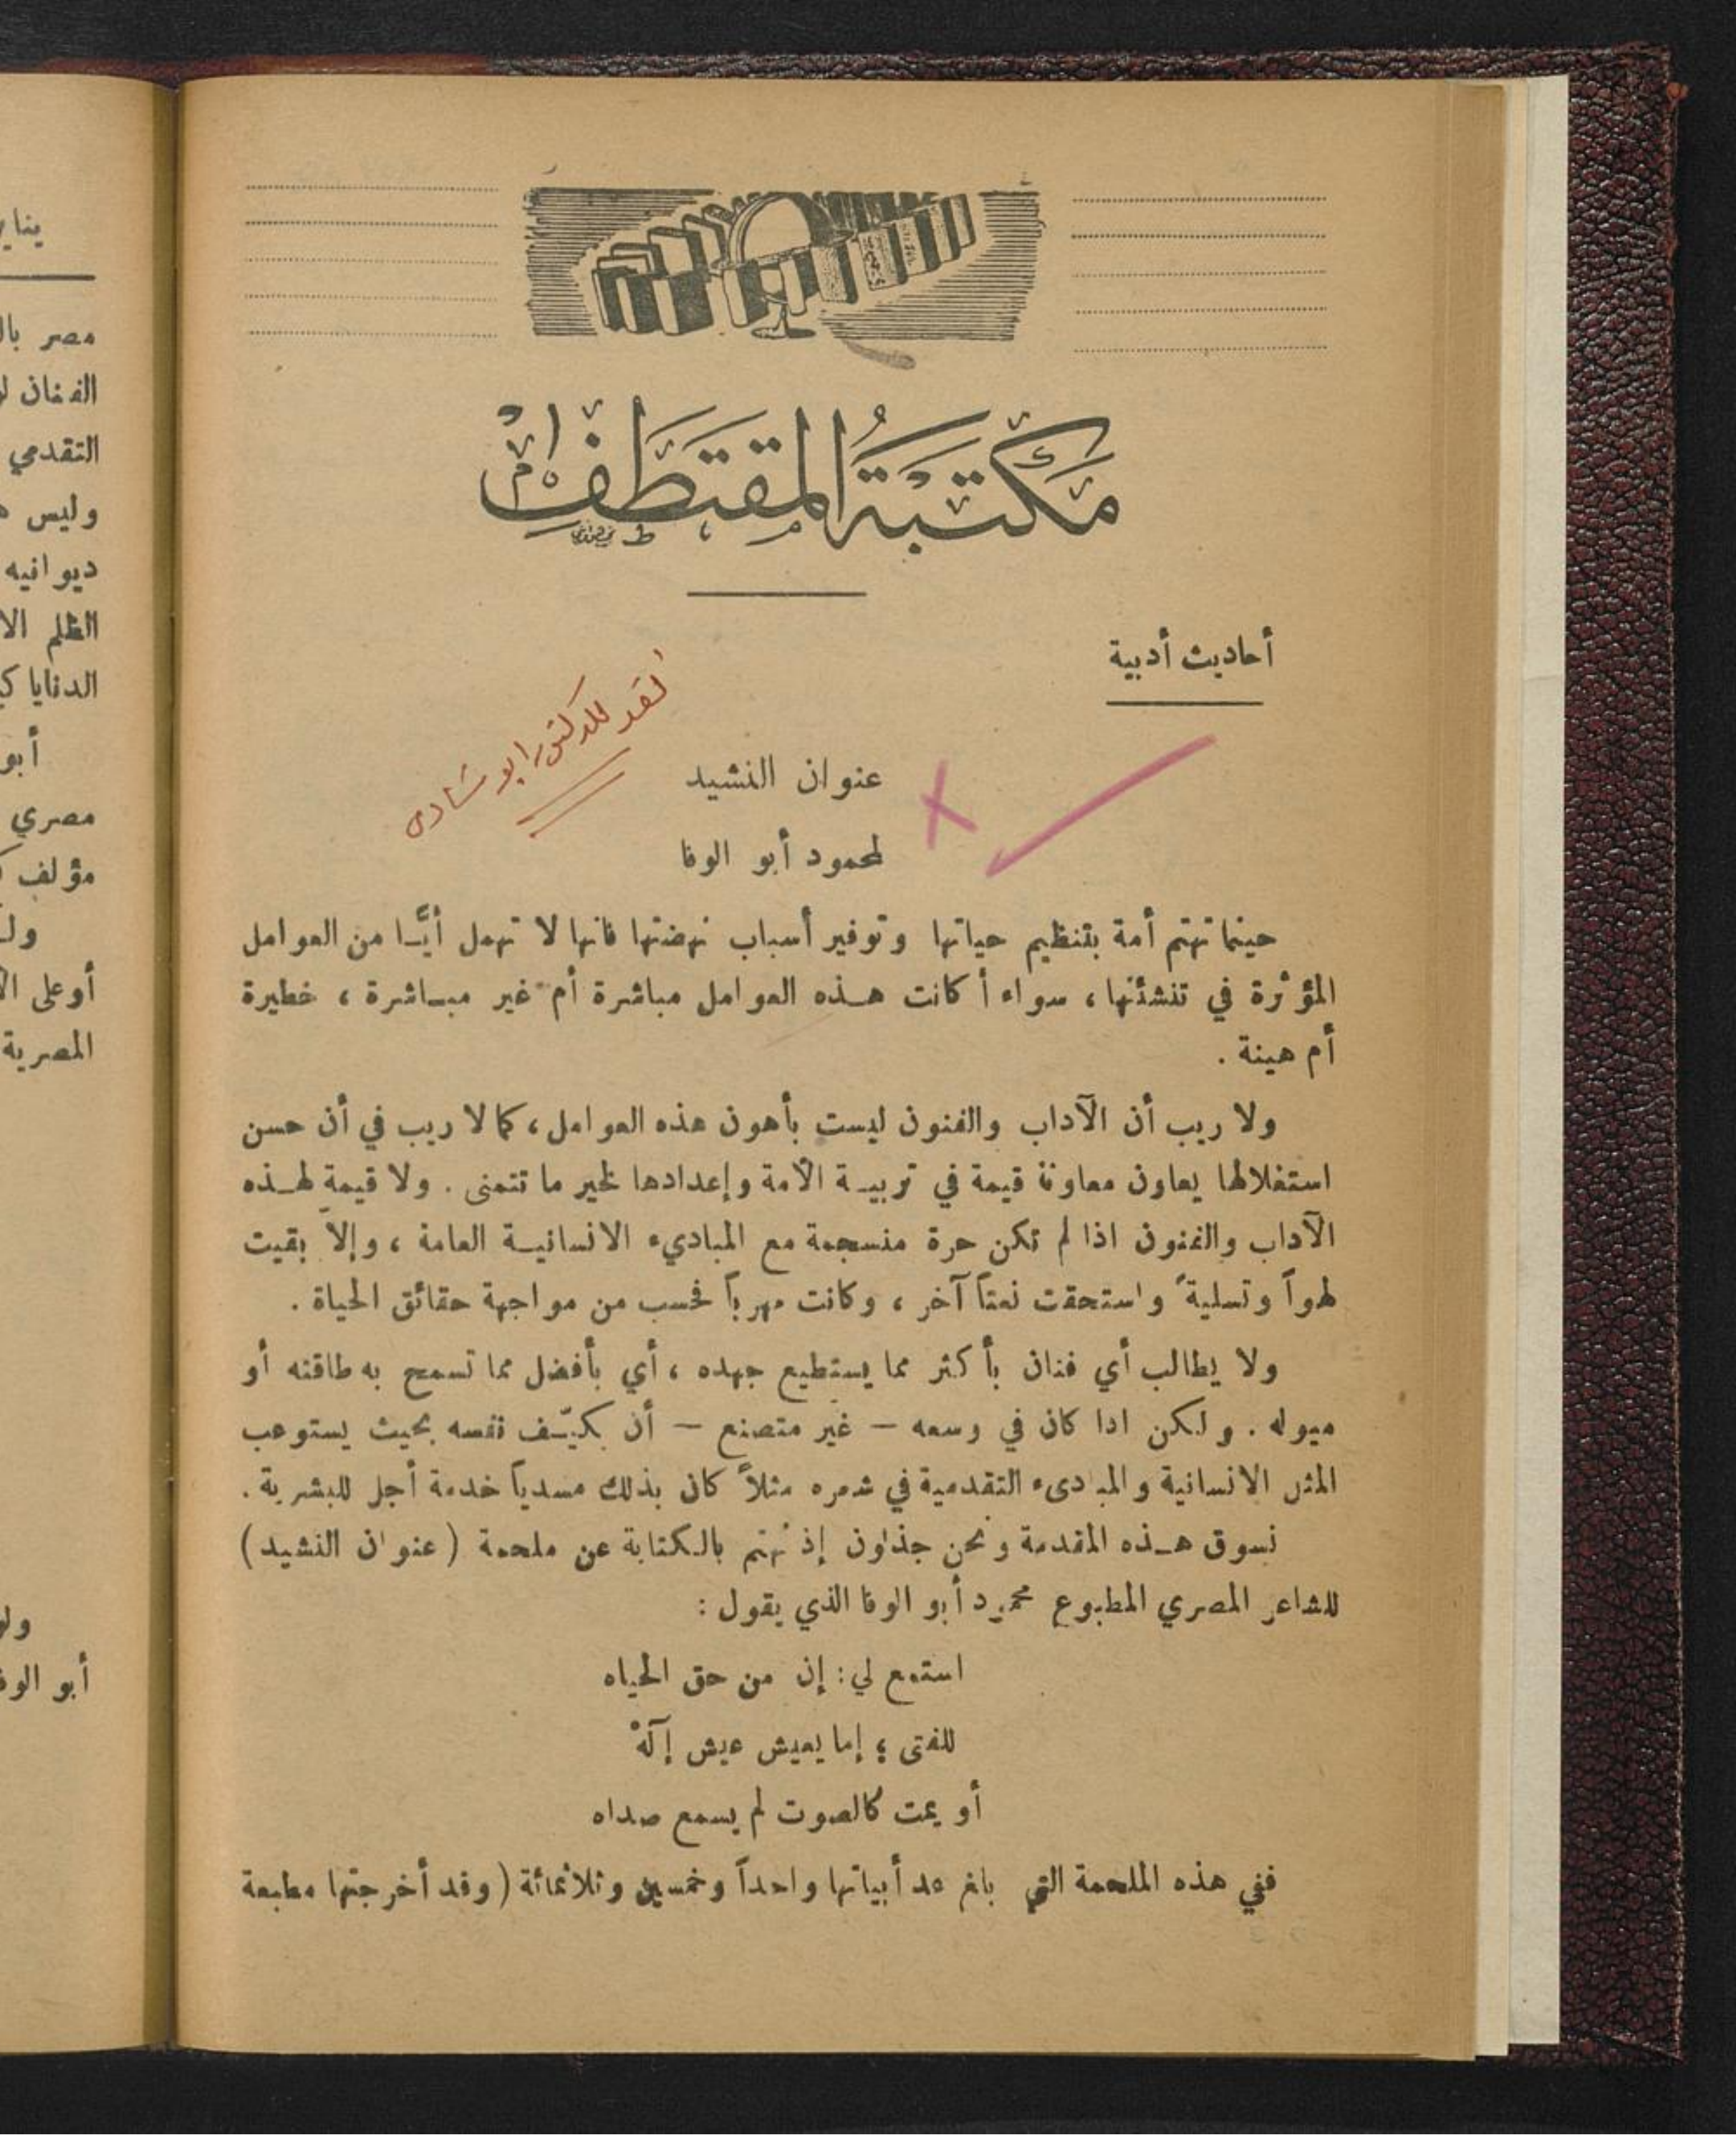 مكتبة المقتطف
أحاديث أدبية
نقد للدكتور ابو شادى
عنوان النشيد
لمحمود أبو الوفا
حينما تهتم أمة بتنظيم حياتها وتوفير أسباب نهضتها فانها لا تهمل أيًّا من العوامل
المؤثرة في تنشئتها، سواء أكانت هذه العوامل مباشرة أم غير مباشرة، خطيرة
أم هينة.
ولا ريب أن الآداب والفنون ليست بأهون هذه العوامل، كما لا ريب في أن حسن
استغلالها يعاون معاونة قيمة في تربية الأمة وإعدادها لخير ما تتمنى. ولا قيمة لهذه
الآداب والفنون اذا لم تكن حرة منسجمة مع المباديء الانسانية العامة، وإلاّ بقيت
لهواً وتسليةً واستحقت نعتاً آخر، وكانت مهرباً فحسب من مواجهة حقائق الحياة.
ولا يطالب أي فنان بأكثر مما يستطيع جهده، أي بأفضل مما تسمح به طاقته أو
ميوله. ولكن اذا كان في وسعه — غير متصنع — أن يكيّف نفسه بحيث يستوعب
المثل الانسانية والمبادىء التقدمية في شعره مثلاً كان بذلك مسدياً خدمة أجل للبشرية.
نسوق هذه المقدمة ونحن جذلون إذ نهتم بالكتابة عن ملحمة (عنوان النشيد)
للشاعر المصري المطبوع محمود أبو الوفا الذي يقول:
استمع لي: إن من حق الحياه
للفتى؛ إما يعيش عيش إلَهْ
أو يمت كالصوت لم يسمع صداه
ففي هذه الملحمة التي بلغ عد أبياتها واحداً وخمسين وثلاثمائة (وقد أخرجتها مطبعة
مصر
الفنان
التقدمي
وليس
ديوانيه
الظلم
الدنايا
أبو
مصري
مؤلف
أوعلى
المصرية
أبو